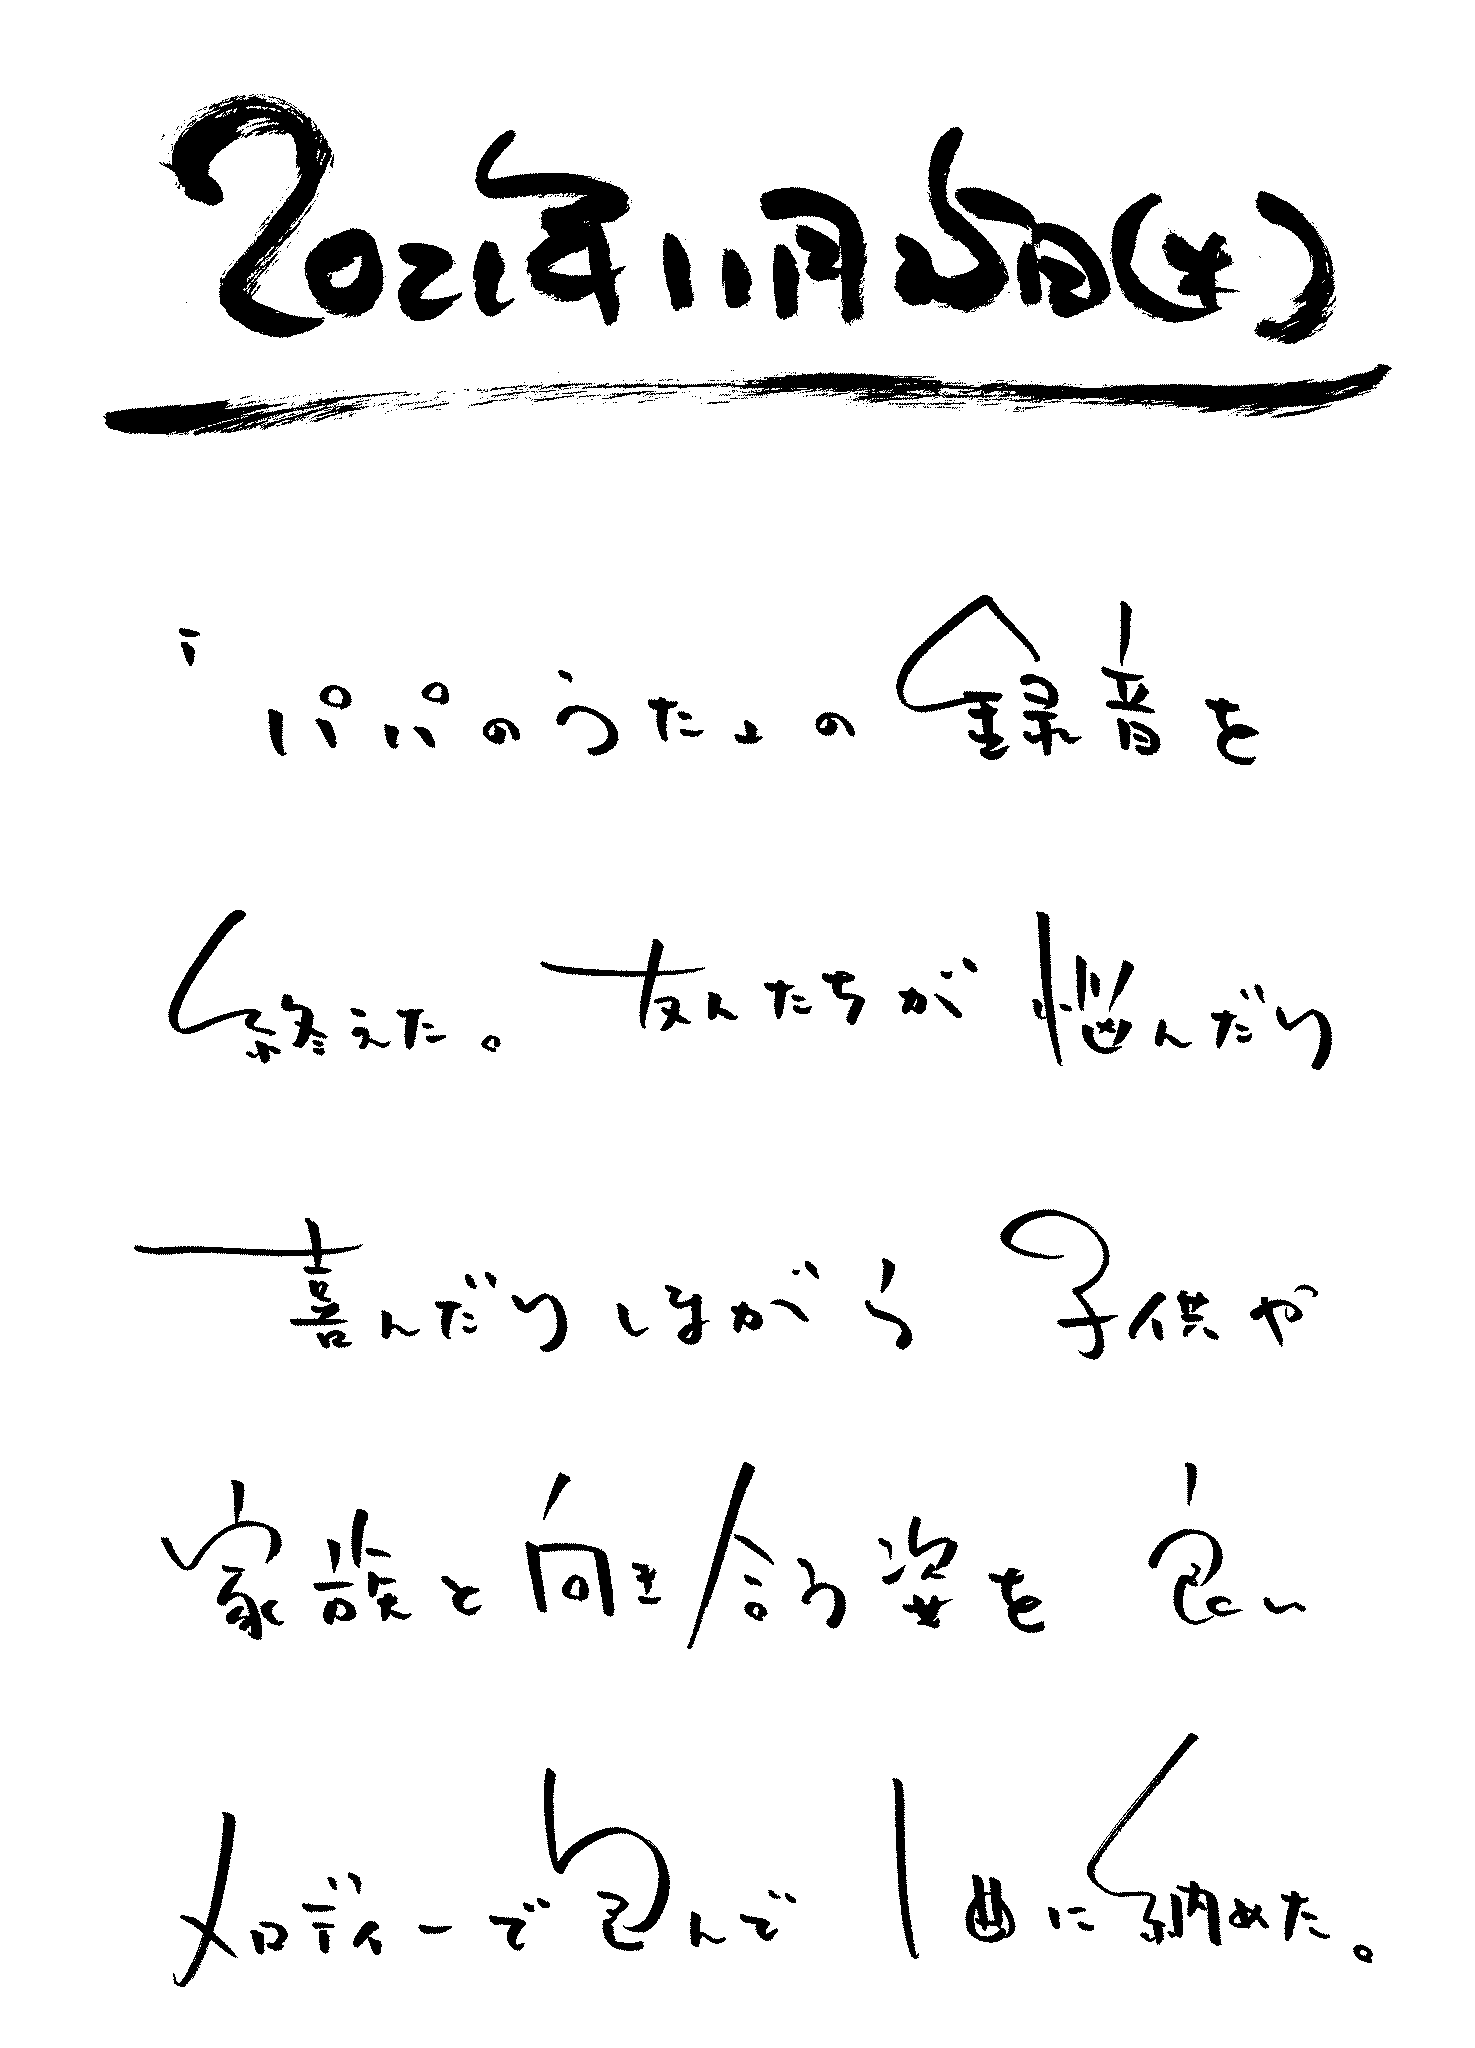 2021年11月25日(木)
「パパのうた」の録音を
終えた。友人たちが悩んだり
喜んだりしながら子供や
家族と向き合う姿を良い
メロディーで包んで1曲に納めた。